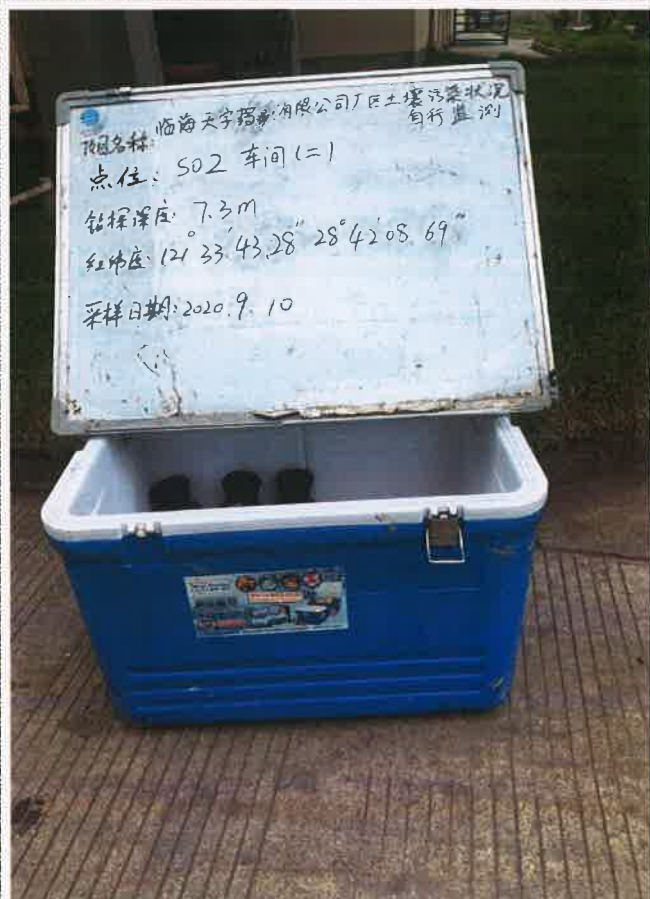 项目名称: 临海天宇药业有限公司厂区土壤污染状况
自行监测
点位: S02 车间(二)
钻探深度: 7.3m
经纬度: 121°33′43.28″ 28°42′08.69″
采样日期: 2020.9.10